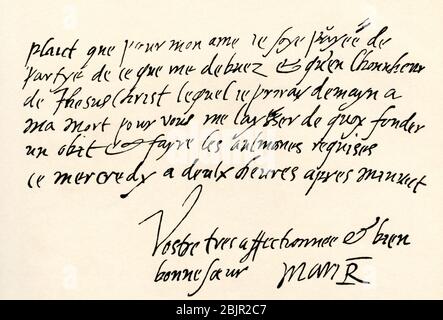 plaict que pour mon ame ie soye payée de
partye de ce que me debuez & qu'en l'honneur
de Jhesus Christ lequel ie priray demayn a
ma mort pour vous me laysser de quoy fonder
un obit & fayre les aulmones requises
ce mercredy a deulx heures apres minuict
Vostre tres affectionnee & bien
bonne sœur MARI R
a
alamy
Image ID: 2BJR2C7
www.alamy.com